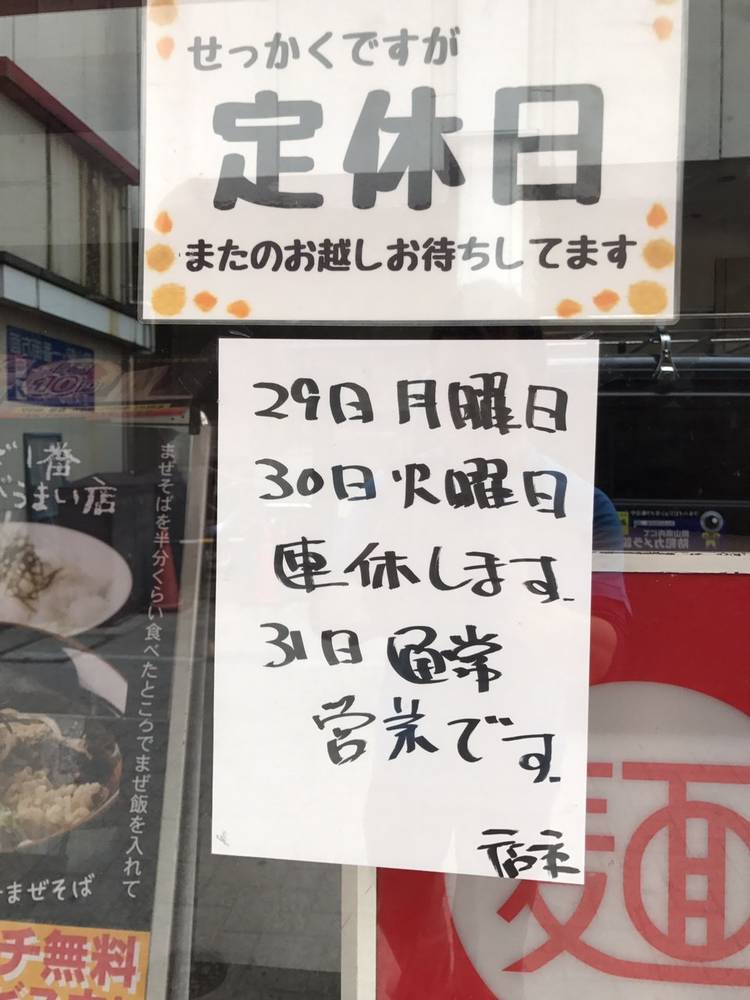 せっかくですが
定休日
またのお越しお待ちしてます
29日月曜日
30日火曜日
連休します.
31日通常
営業です.
店主
1番
うまい店
まぜそばを半分くらい食べたところでまぜ飯を入れて
まぜそば
チ無料
防犯カメラ
麺